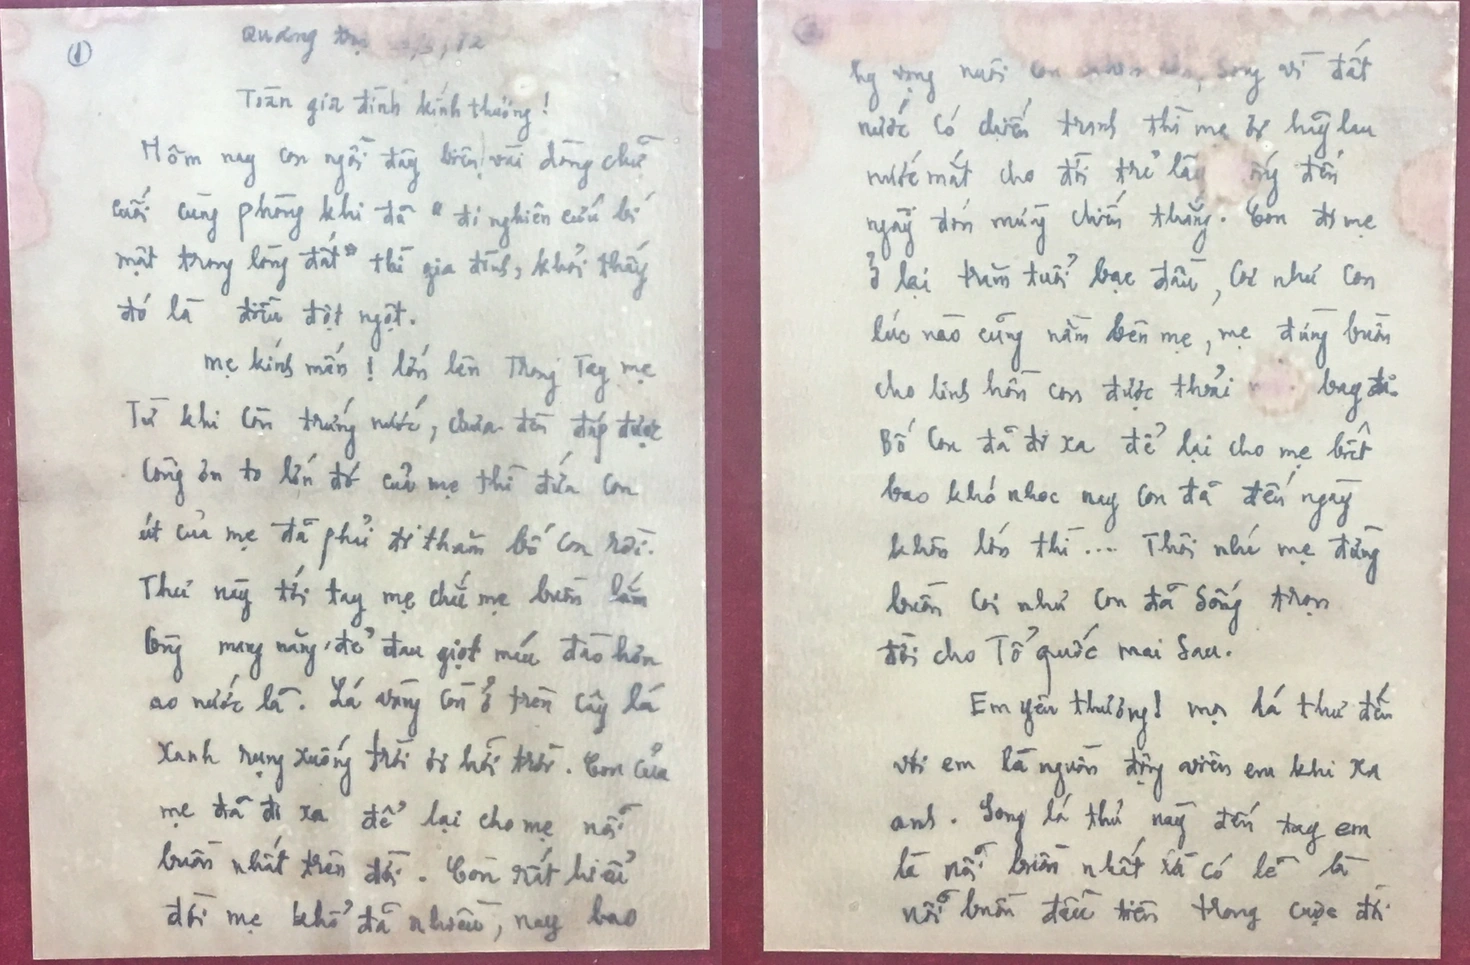 ①
Quảng Trị
Toàn gia đình kính thương!
Hôm nay con ngồi đây biên vài dòng chữ
cuối cùng phòng khi đã "đi nghiên cứu bí
mật trong lòng đất" thì gia đình, khỏi thấy
đó là điều đột ngột.
mẹ kính mến! lớn lên Trong Tay mẹ
Từ khi còn trứng nước, chưa đền đáp được
công ơn to lớn đó của mẹ thì đứa con
út của mẹ đã phải đi thăm bố con rồi.
Thư này tới tay mẹ chắc mẹ buồn lắm
lòng mang nặng, đẻ đau giọt máu đào hơn
ao nước lã. Lá vàng còn ở trên cây lá
xanh rụng xuống trời ơi hỡi trời. Con của
mẹ đã đi xa để lại cho mẹ nỗi
buồn nhất trên đời. Con rất hiểu
đời mẹ khổ đã nhiều, nay bao
hy vọng nuôi con khôn lớn, Song vì đất
nước có chiến tranh thì mẹ ơi hãy lau
nước mắt cho đời trẻ lây đến
ngày đón mừng chiến thắng. Con đi mẹ
ở lại trăm tuổi bạc đầu, Coi như Con
lúc nào cũng nằm bên mẹ, mẹ đừng buồn
cho linh hồn con được thoải bay đi.
Bố Con đã đi xa để lại cho mẹ biết
bao khó nhọc nay Con đã đến ngày
khôn lớn thì.... Thôi nhé mẹ đừng
buồn Coi như Con đã Sống trọn
đời cho Tổ quốc mai Sau.
Em yêu thương! mọi lá thư đến
với em là nguồn động viên em khi xa
anh. Song lá thư này đến tay em
là nỗi buồn nhất và có lẽ là
nỗi buồn đầu tiên trong cuộc đời